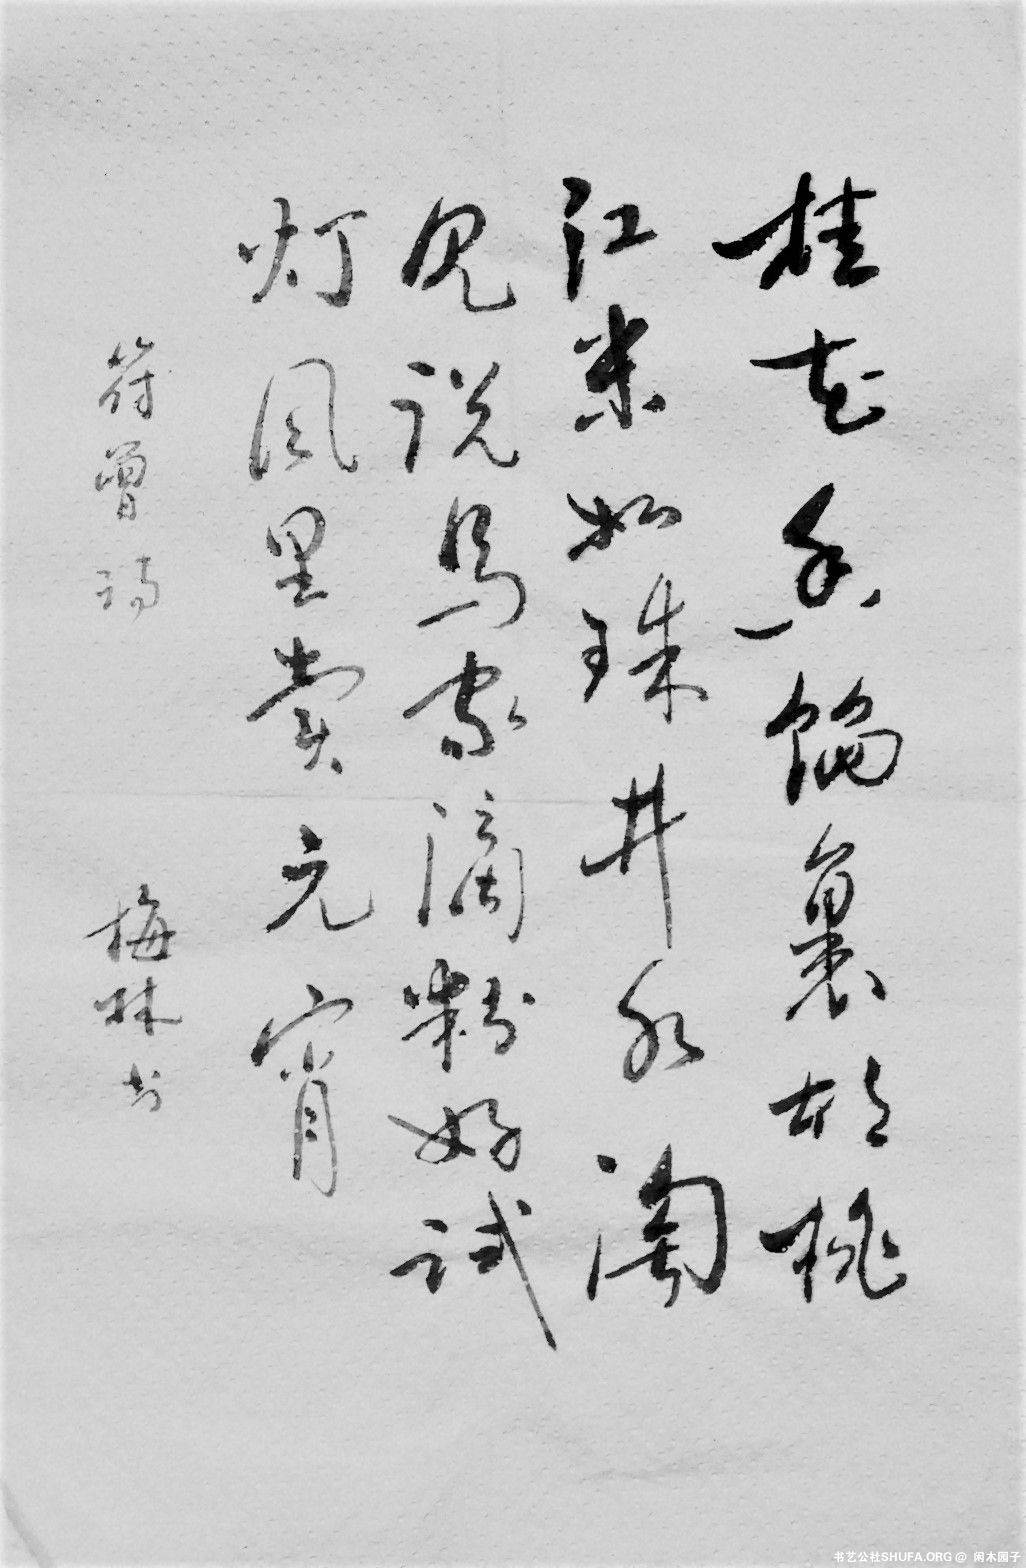 桂花香馅裹胡桃
江米如珠井水淘
见说马家滴粉好试
灯风里卖元宵
符曾诗
梅林书
书艺公社SHUFA.ORG @ 闲木园子